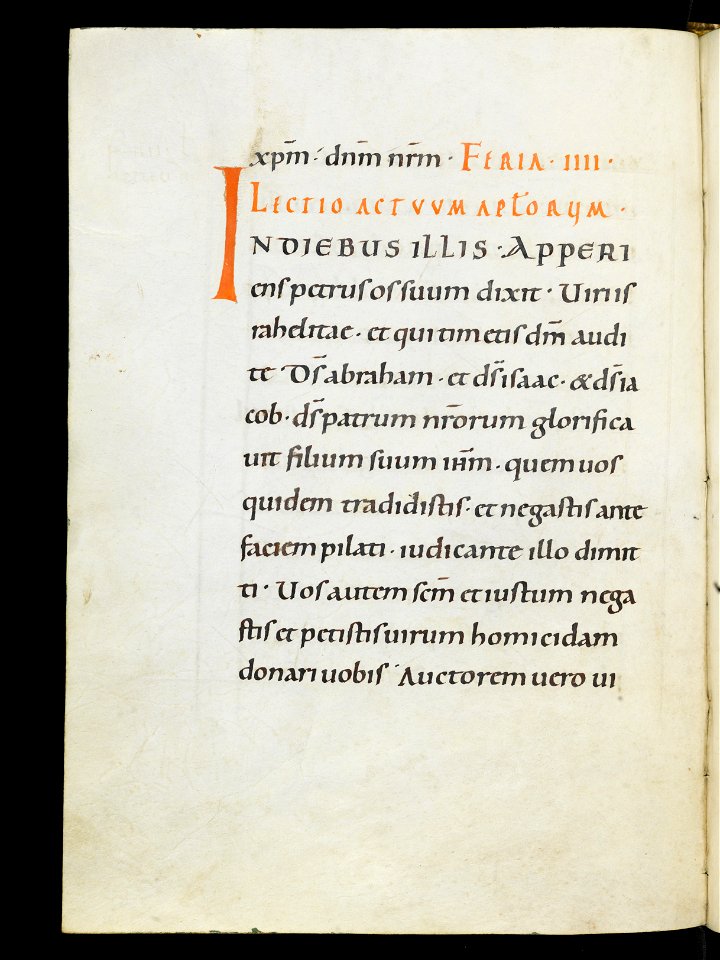 xp̄m · dn̄m nr̄m · FERIA · IIII ·
LECTIO ACTVVM APL̄ORUM ·
INDIEBUS ILLIS · APPERI
ens petrus os suum dixit · Uiri is
rahelitae · et qui timetis dm̄ audi
te · Ds̄ abraham · et ds̄ isaac · & ds̄ ia
cob · ds̄ patrum nr̄orum glorifica
uit filium suum ih̄m · quem uos
quidem tradidistis · et negastis ante
faciem pilati · iudicante illo dimit
ti · Uos autem sc̄m et iustum nega
stis et petistis uirum homicidam
donari uobis · Auctorem uero ui